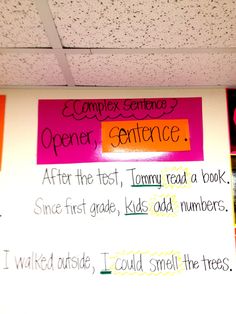 Complex Sentence
Opener, sentence.
After the test, Tommy read a book.
Since first grade, kids add numbers.
I walked outside, I could smell the trees.